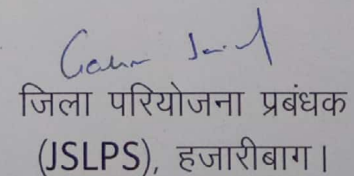 जिला परियोजना प्रबंधक
(JSLPS), हजारीबाग।